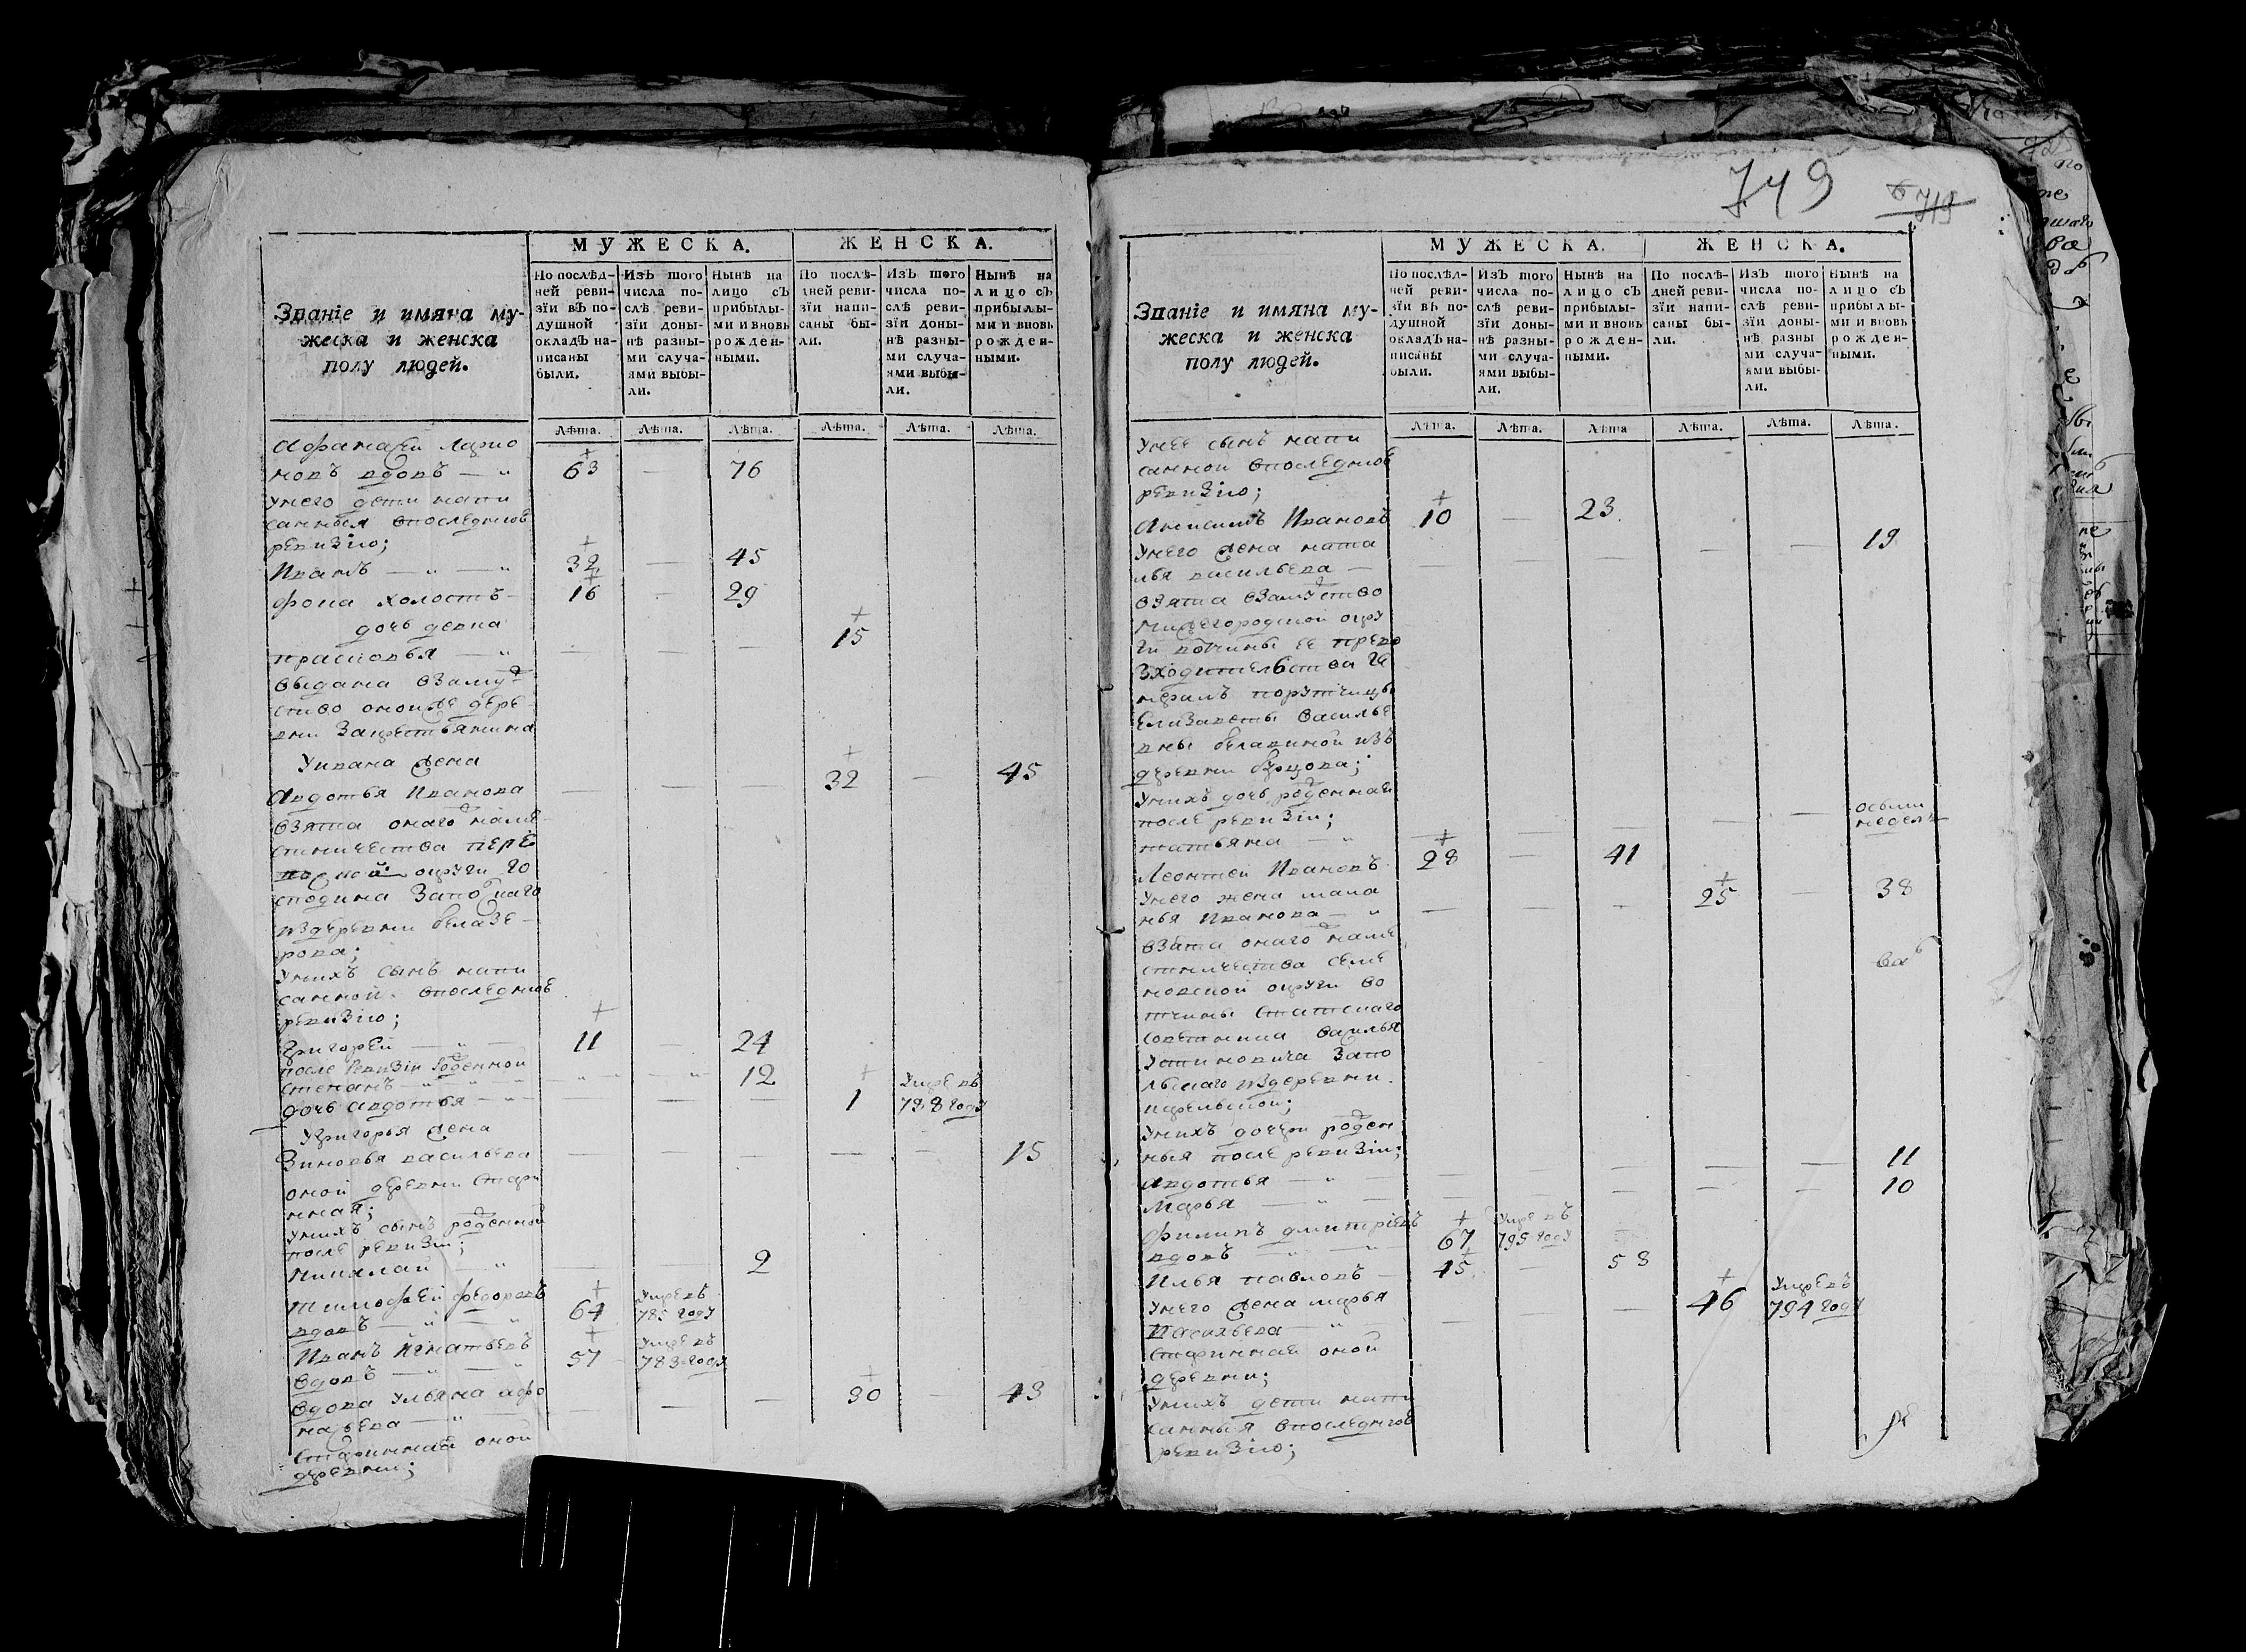 МУЖЕСКА. ЖЕНСКА.
Званіе и имяна му-
жеска и женска
полу людей.
По послѣд-
ней реви-
зіи въ по-
душной
окладъ на-
писаны
были.
Изъ того
числа по-
слѣ реви-
зіи доны-
нѣ разны-
ми случа-
ями выбы-
ли.
Нынѣ на
лицо съ
прибылы-
ми и вновь
рожден-
ными.
По послѣ-
дней реви-
зіи напи-
саны бы-
ли.
Изъ того
числа по-
слѣ реви-
зіи доны-
нѣ разны-
ми случа-
ями выбы-
ли.
Нынѣ на
лицо съ
прибылы-
ми и вновь
рожден-
ными.
Лѣта. Лѣта. Лѣта. Лѣта. Лѣта. Лѣта.
Афанасеи Ларио
новъ вдовъ — 63 — 76
унего дети напи
санныя впоследнюю
ревизию;
Иванъ — 32 — 45
фока холостъ — 16 — 29
дочь девка
прасковья — 15
выдана взаму
ство оной же дере
вни закрестьянина
Уивана жена
Авдотья Иванова — 32 — 45
взята онаго наме
стничества
округи го
сподина
издеревни
рова;
Унихъ сынъ напи
санной впоследнюю
ревизию;
Григорей — 11 — 24
после ревизіи рожденной
Степанъ 12
дочь авдотья — 1 Умре въ
798 году
Угригорья жена
Зиновья васильева — 15
оной деревни стари
нная;
Унихъ сынъ рожденной
после ревизіи;
Николай — 2
Тимофей федоровъ
вдовъ — 64 Умре въ
785 году
Иванъ Игнатьевъ
вдовъ — 57 Умре въ
783 году
Вдова Ульяна афо
насьева — 30 — 43
Старинная оной
деревни;
749
719
МУЖЕСКА. ЖЕНСКА.
Званіе и имяна му-
жеска и женска
полу людей.
По послѣд-
ней реви-
зіи въ по-
душной
окладъ на-
писаны
были.
Изъ того
числа по-
слѣ реви-
зіи доны-
нѣ разны-
ми случа-
ями выбы-
ли.
Нынѣ на
лицо съ
прибылы-
ми и вновь
рожден-
ными.
По послѣ-
дней реви-
зіи напи-
саны бы-
ли.
Изъ того
числа по-
слѣ реви-
зіи доны-
нѣ разны-
ми случа-
ями выбы-
ли.
Нынѣ на
лицо съ
прибылы-
ми и вновь
рожден-
ными.
Лѣта. Лѣта. Лѣта Лѣта. Лѣта. Лѣта.
Унее сынъ напи
санной впоследнюю
ревизию;
Анисимъ Ивановъ 10 — 23
Унего жена ната
лья васильева — 19
взята взамужство
Нижегородской окру
ги вотчины ее прево
зходительства ге
нералъ порутчицы
Елизаветы василье
вны из
деревни
Унихъ дочь рожденная
после ревизіи;
татьяна — осьми
недель
Леонтей Ивановъ 28 — 41
Унего жена мала
нья Иванова — 25 — 38
взята онаго наме
стничества семе
новской округи во
тчины статскаго
советника василья
Устиновича
издеревни
Унихъ дочери рожден
ныя после ревизіи;
Авдотья — 11
Марья — 10
Филипъ дмитріевъ
вдовъ 67 Умре въ
795 году
Илья павловъ — 45 — 58
Унего жена марья
Васильева — 46 Умре въ
794 году
Старинная оной
деревни;
Унихъ дети напи
санныя впоследнюю
ревизию;